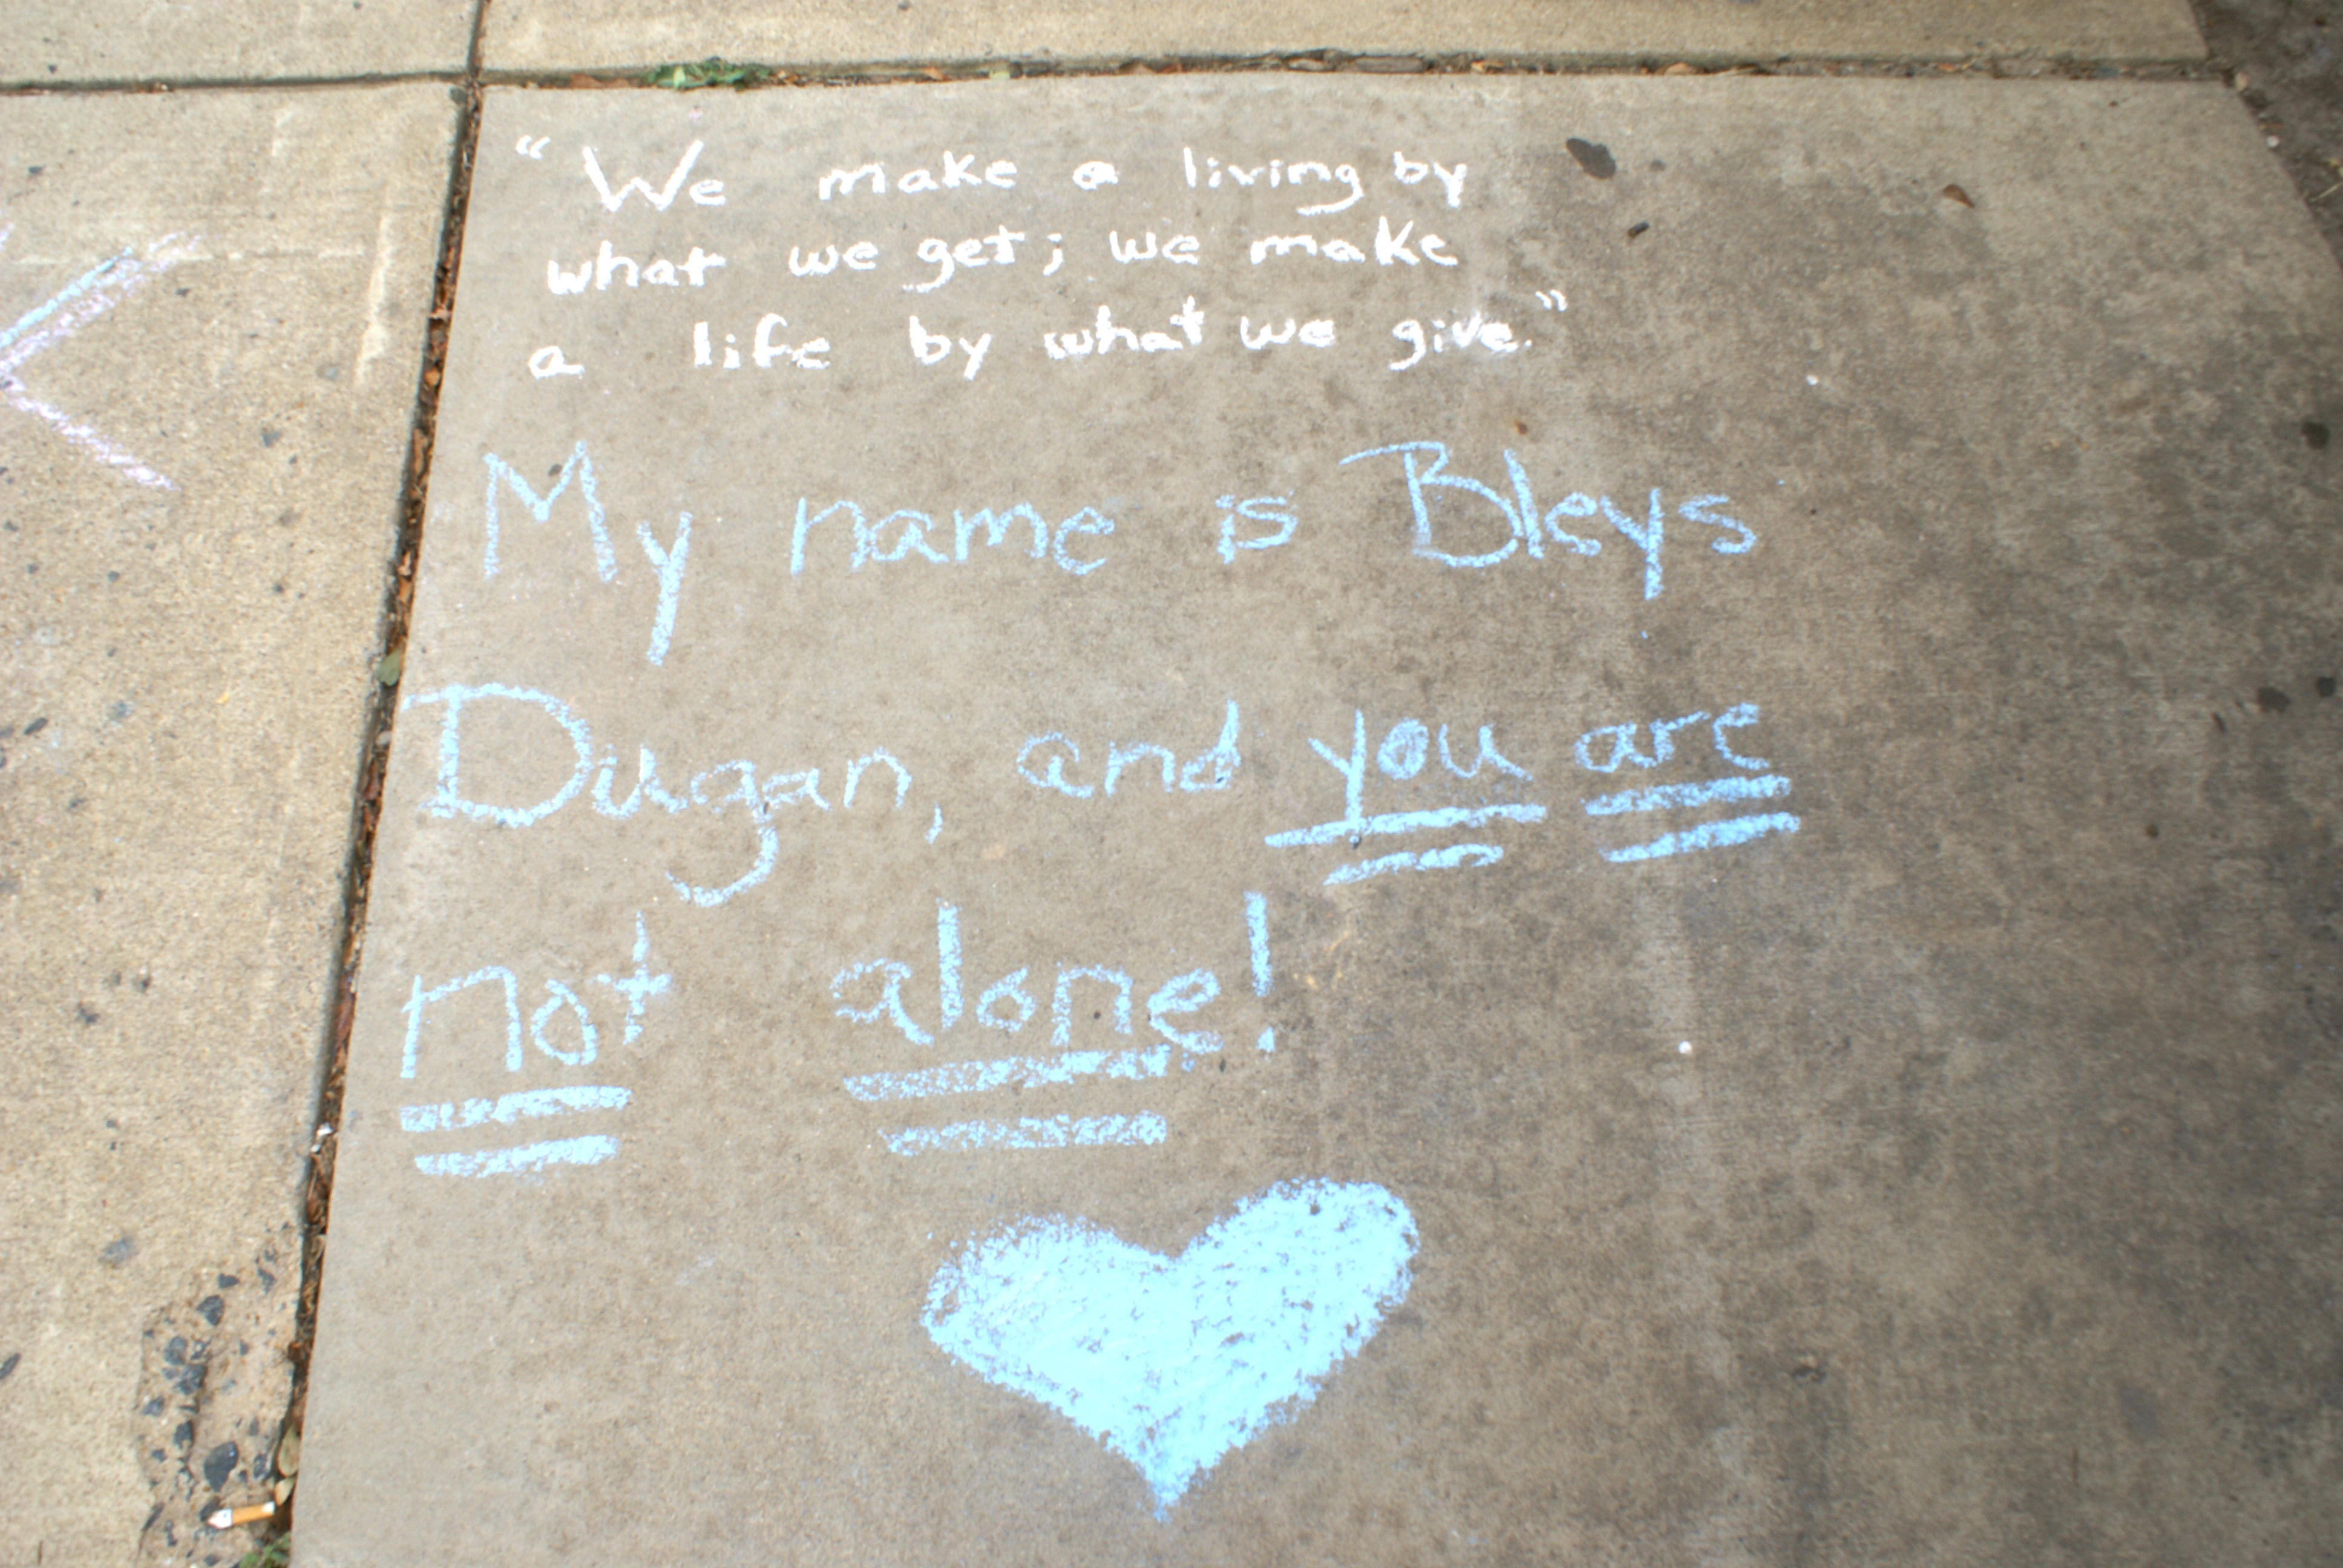 “We make a living by
what we get; we make
a life by what we give.”
My name is Bleys
Dugan, and you are
not alone!